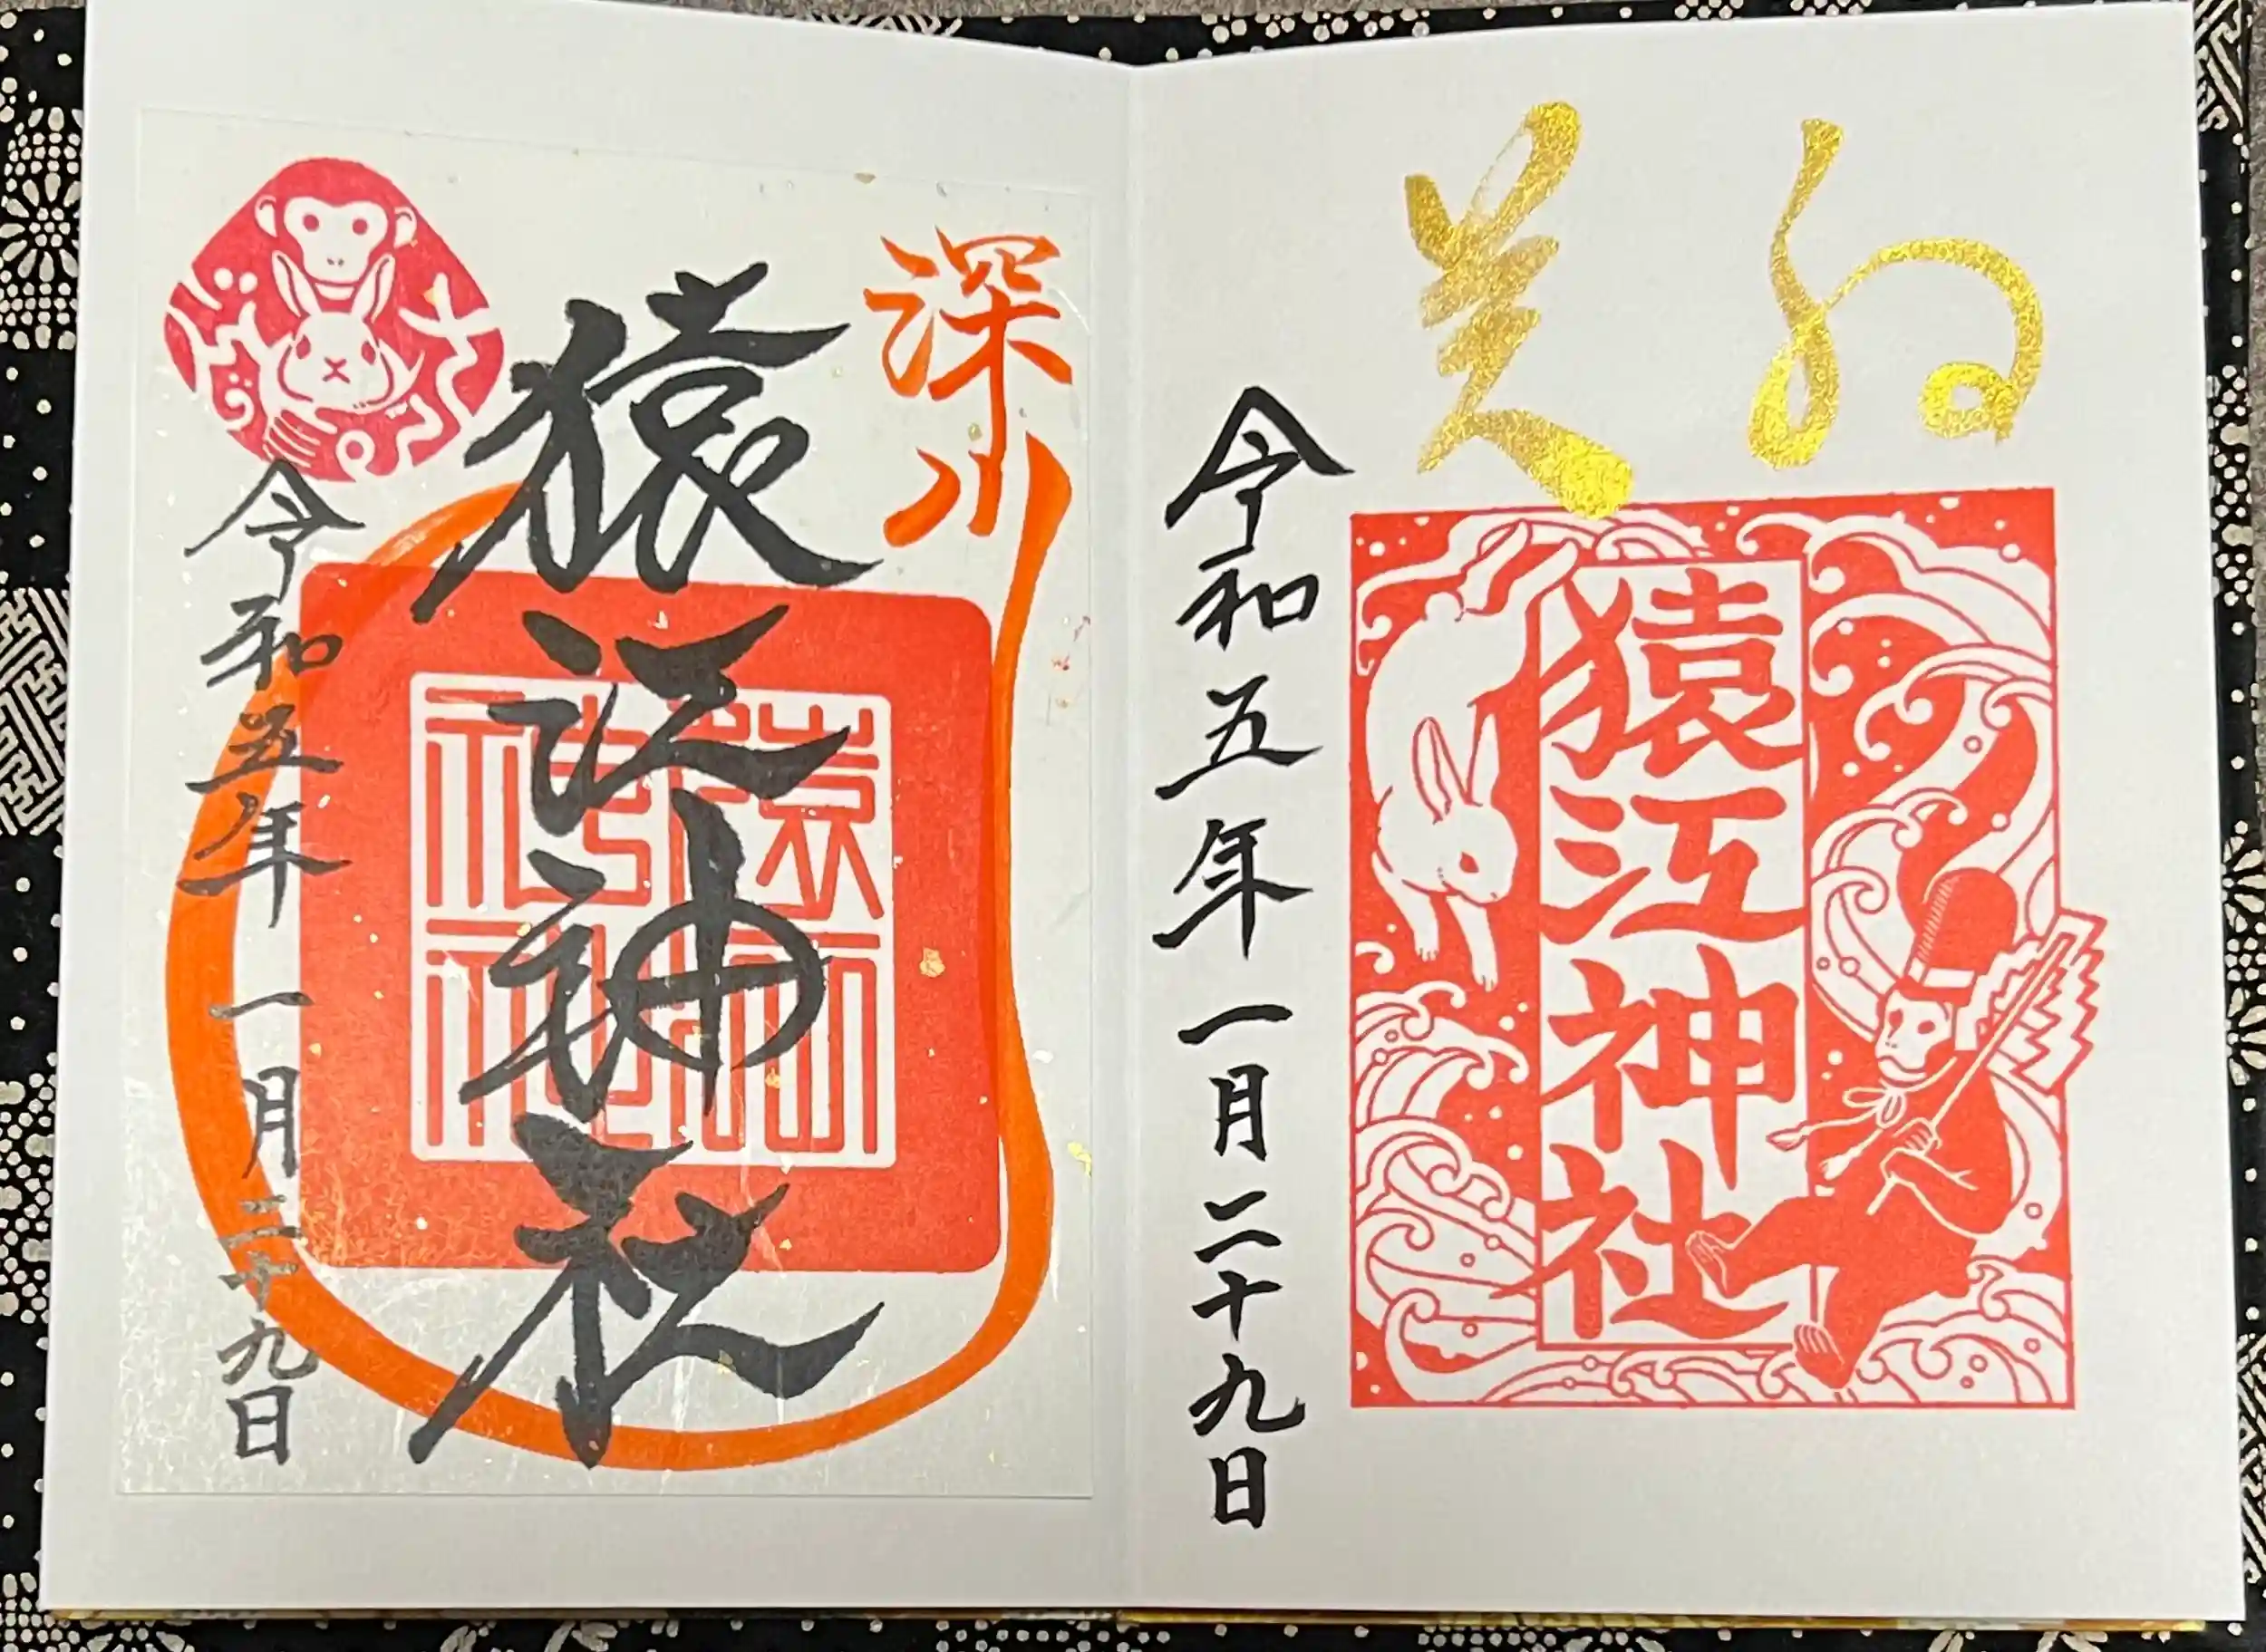 猿江神社
令和五年一月二十九日
深川
猿江神社
令和五年一月二十九日